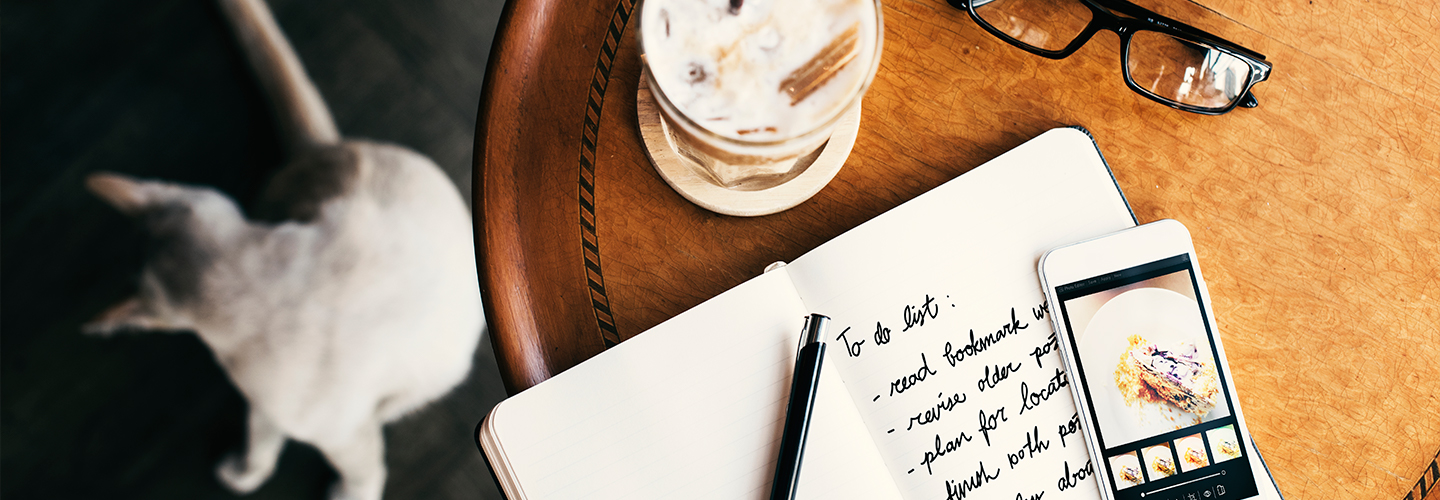 To do list :
- read bookmark we
- revise older pos
- plan for locat
- finish both po
abo